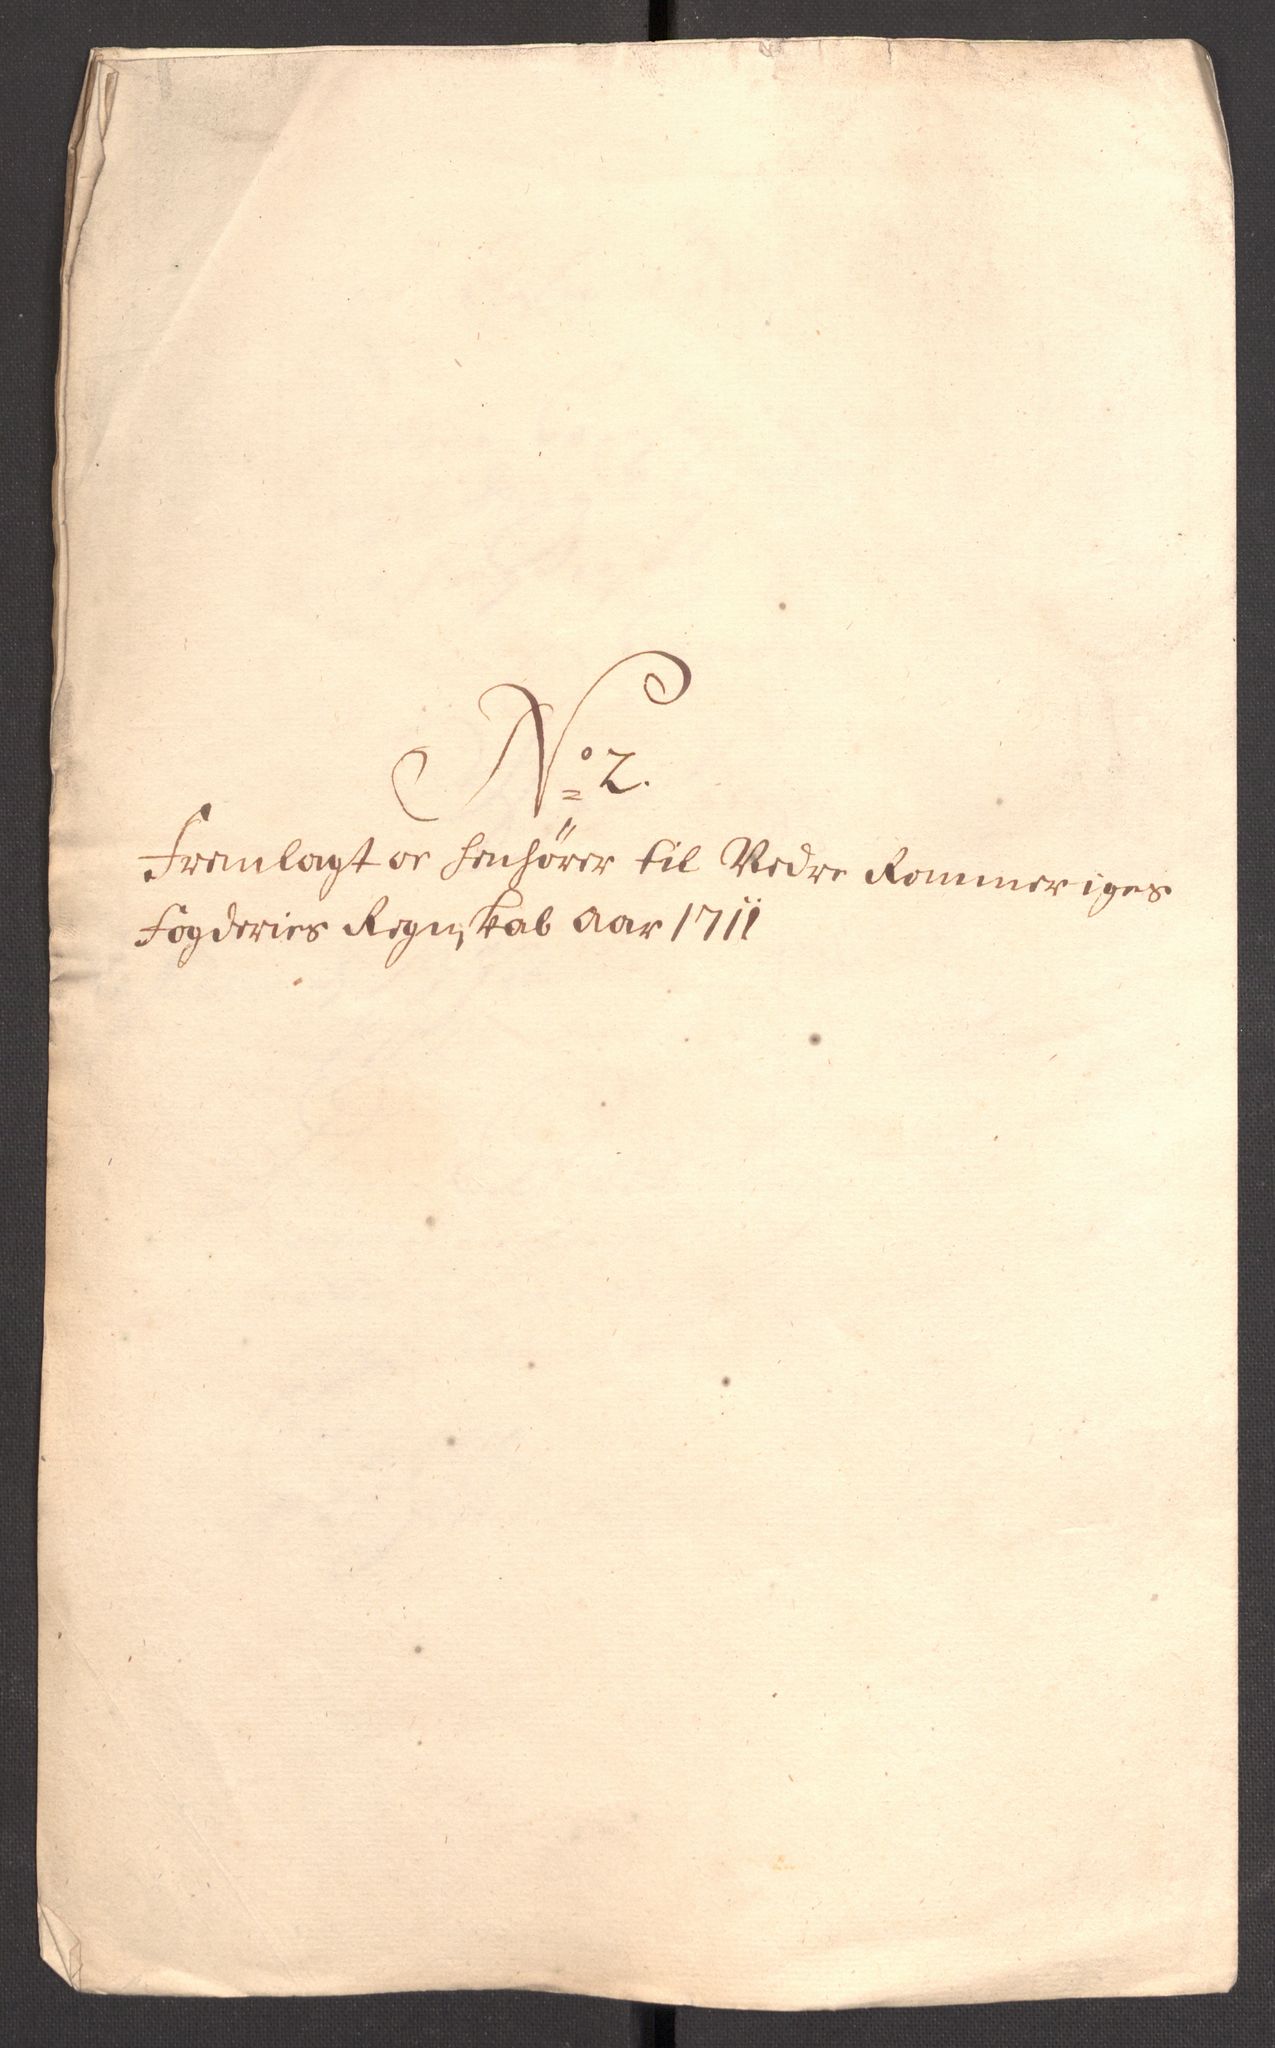 No 2.
Fremlagt oc henhörer til Nedre Rommeriges
Fogderies Regnskab Aar 1711